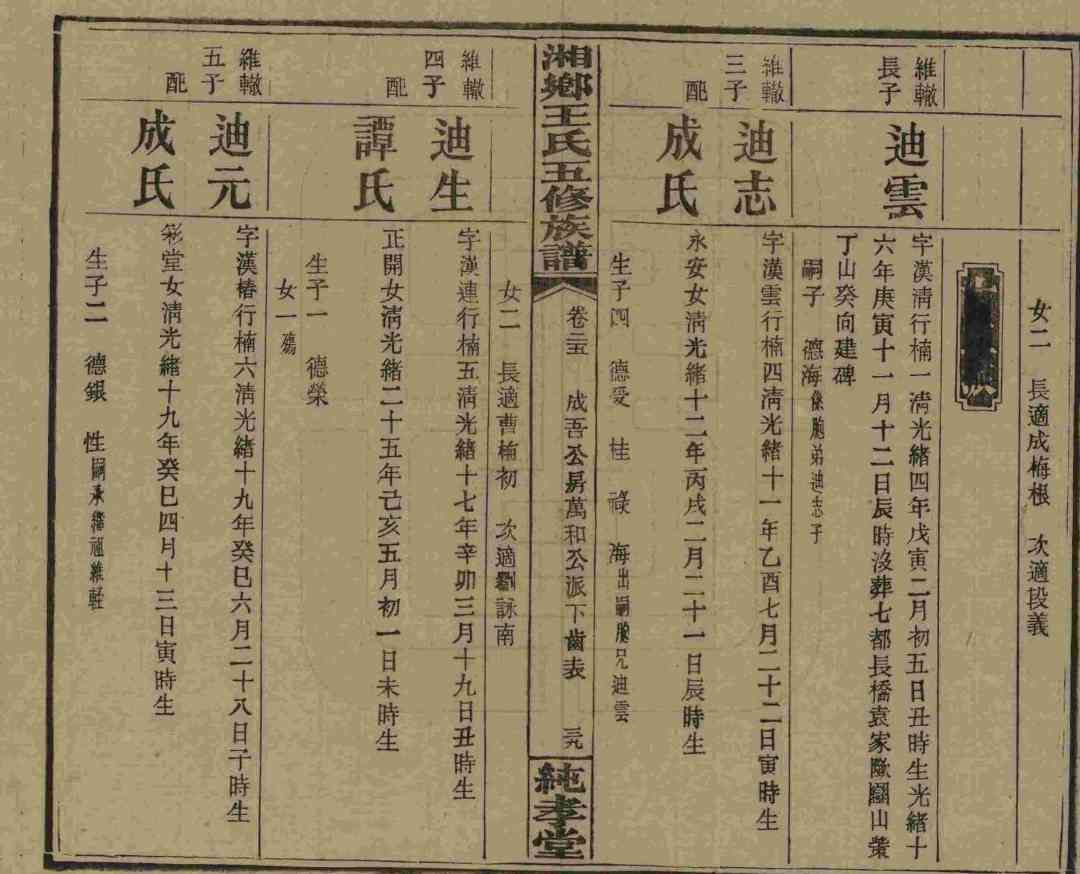 女二 長適成梅根 次適段義
維轍
長子
迪雲
字漢淸行楠一淸光緒四年戊寅二月初五日丑時生光緒十
六年庚寅十一月十二日辰時沒葬七都長橋袁家 山
丁山癸向建碑
嗣子 德海係胞弟迪志子
維轍
三子
迪志
字漢雲行楠四淸光緒十一年乙酉七月二十二日寅時生
配
成氏
永安女淸光緒十二年丙戌二月二十一日辰時生
生子四 德愛 桂 祿 海出嗣胞兄迪雲
湘鄉王氏五修族譜
卷三五 成吾公房萬和公派下齒表 三九
純孝堂
女二 長適曹楠初 次適劉詠南
維轍
四子
迪生
字漢連行楠五淸光緒十七年辛卯三月十九日丑時生
配
譚氏
正開女淸光緒二十五年己亥五月初一日未時生
生子一 德榮
女一殤
維轍
五子
迪元
字漢椿行楠六淸光緒十九年癸巳六月二十八日子時生
配
成氏
彩堂女淸光緒十九年癸巳四月十三日寅時生
生子二 德銀 性嗣承繼祖維輊